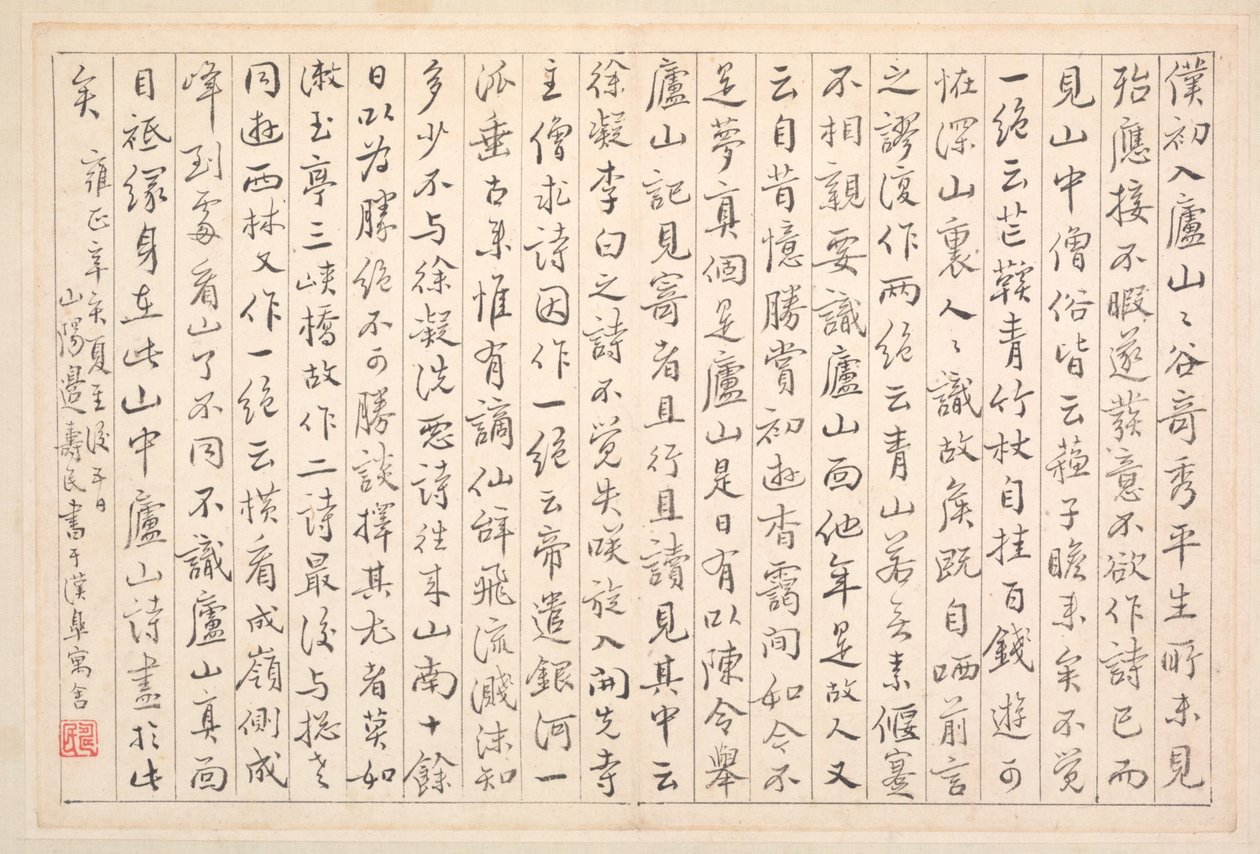 僕初入廬山〻谷奇秀平生所未見
殆應接不暇遂發意不欲作詩已而
見山中僧俗皆云蘓子瞻来矣不觉
一絶云芒鞵青竹杖自挂百錢遊可
怪深山裏人〻識故矦既自哂前言
之謬復作兩絶云青山若無素偃蹇
不相親要識廬山面他年是故人又
云自昔憶勝賞初遊杳靄间如今不
是夢真個是廬山是日有以陳令舉
廬山記見寄者且行且讀見其中云
徐凝李白之詩不觉失咲旋入開先寺
主僧求詩因作一絶云帝遣銀河一
派垂古来惟有謫仙辞飛流濺沫知
多少不与徐凝洗惡詩往来山南十餘
日以为勝絶不可勝談擇其尤者莫如
漱玉亭三峽橋故作二詩最後与捴老
同遊西林又作一絶云橫看成嶺側成
峰到處看山了不同不識廬山真面
目祗緣身在此山中廬山詩盡於此
矣
雍正辛亥夏至後五日
山陽邊壽民書于漢臯寓舍